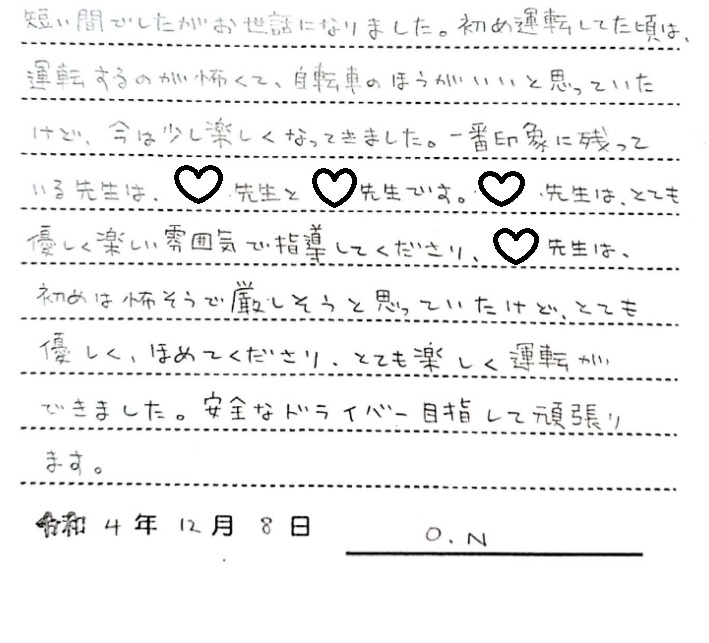 短い間でしたがお世話になりました。初め運転してた頃は、
運転するのが怖くて、自転車のほうがいいと思っていた
けど、今は少し楽しくなってきました。一番印象に残って
いる先生は、♡先生と♡先生です。♡先生は、とても
優しく楽しい雰囲気で指導してくださり、♡先生は、
初めは怖そうで厳しそうと思っていたけど、とても
優しく、ほめてくださり、とても楽しく運転が
できました。安全なドライバー目指して頑張り
ます。
令和4年12月8日 O.N